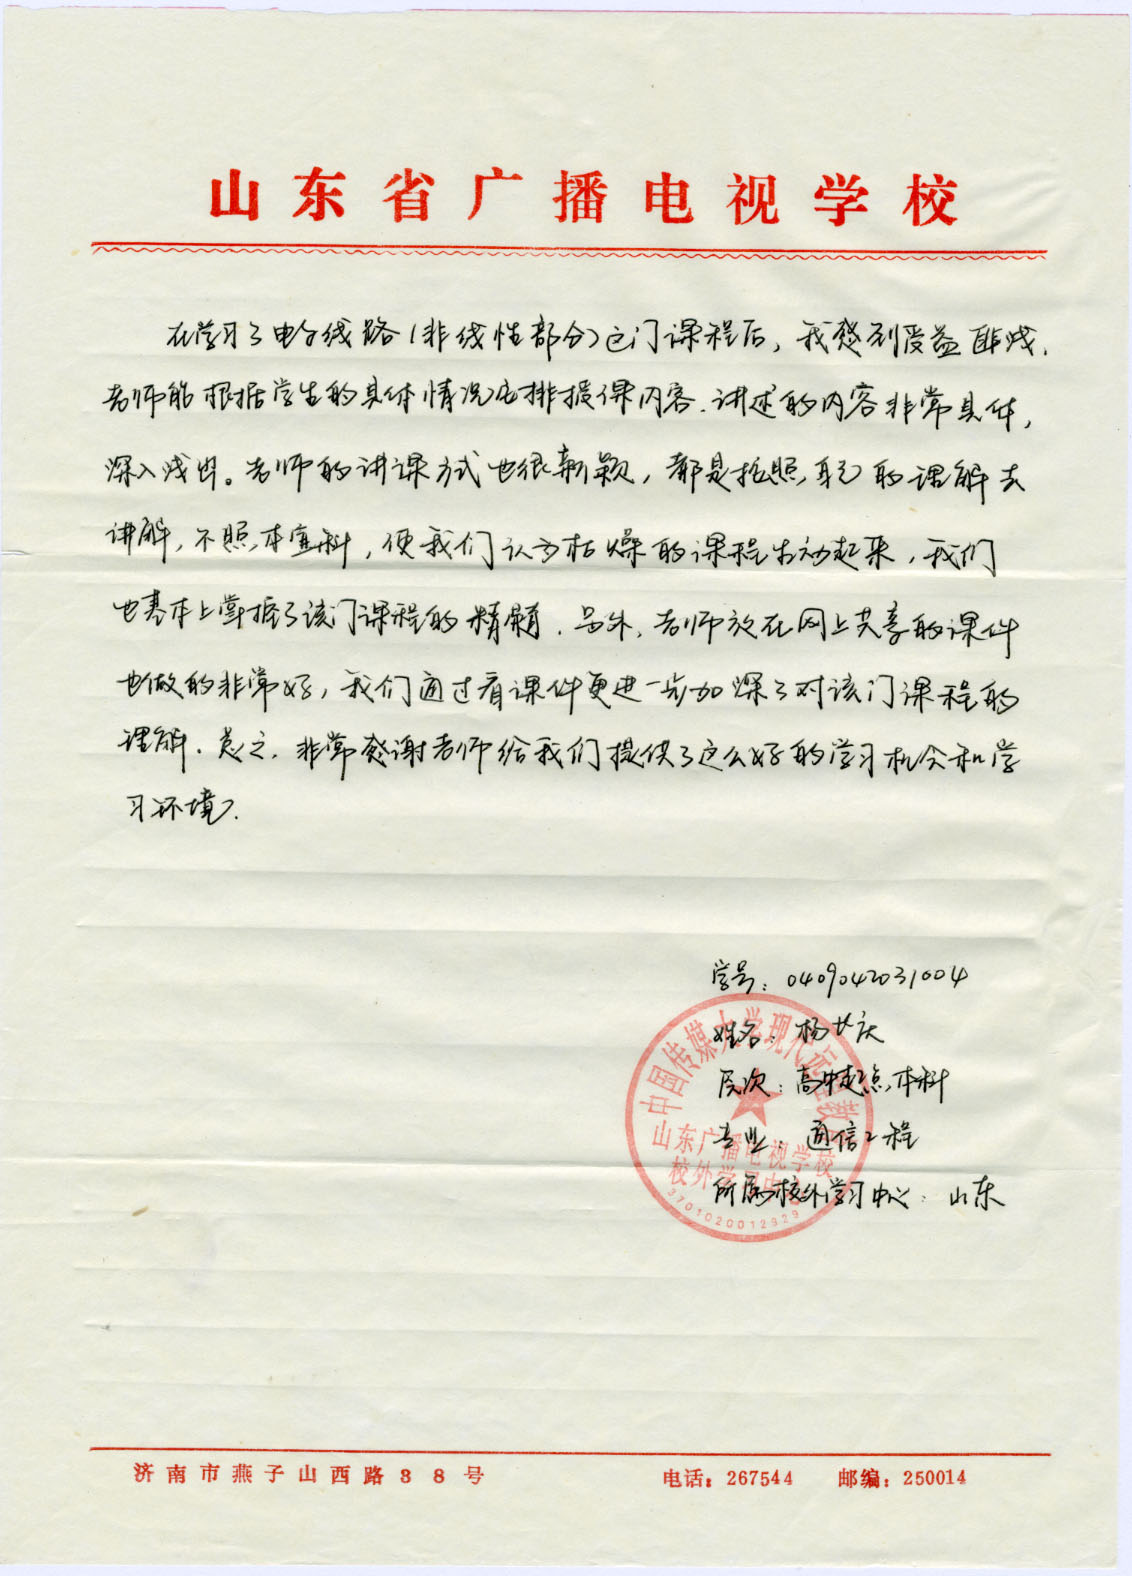 山东省广播电视学校
在学习了电子线路(非线性部分)这门课程后，我感到受益匪浅.
老师能根据学生的具体情况安排授课内容.讲述的内容非常具体，
深入浅出。老师的讲课方式也很新颖，都是按照自己的理解去
讲解，不照本宣科，使我们认为枯燥的课程生动起来，我们
也基本上掌握了该门课程的精髓.另外，老师放在网上共享的课件
也做的非常好，我们通过看课件更进一步加深了对该门课程的
理解.总之.非常感谢老师给我们提供了这么好的学习机会和学
习环境.
学号：0409042031004
姓名：杨庆
层次：高中起点本科
专业：通信工程
所属校外学习中心：山东
中国传媒大学现代远程教
山东广播电视学校
校外学习中
3701020012929
济南市燕子山西路38号 电话：267544 邮编：250014